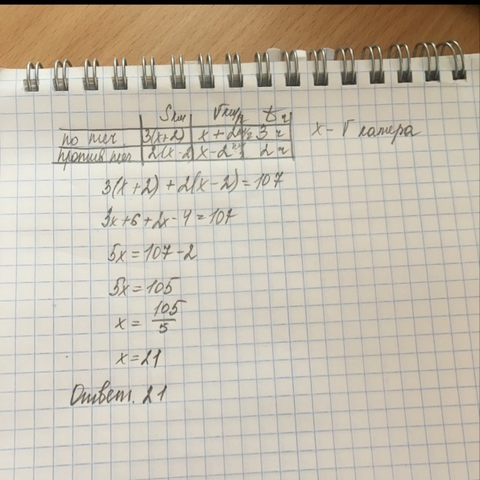 S км V км/ч t ч
по теч. 3(x+2) x+2 км/ч 3 ч x - V катера
против теч 2(x-2) x-2 км/ч 2 ч
3(x+2)+2(x-2)=107
3x+6+2x-4=107
5x=107-2
5x=105
x=105/5
x=21
Ответ. 21